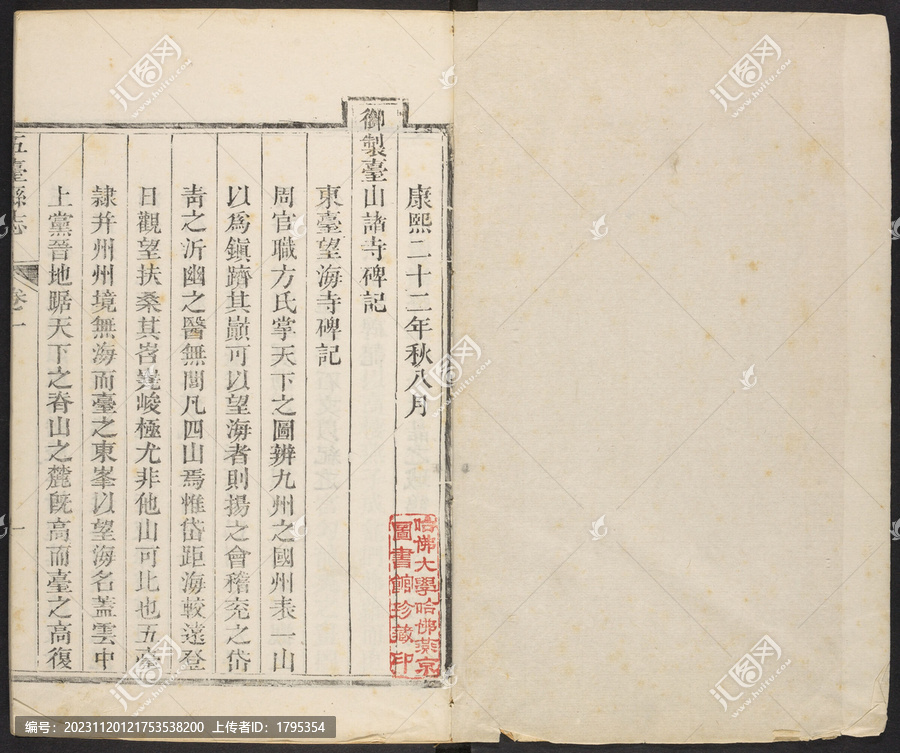 康熙二十二年秋八月
御製臺山諸寺碑記
東臺望海寺碑記
周官職方氏掌天下之圖辨九州之國州表一山
以爲鎭躋其巓可以望海者則揚之會稽兗之岱
靑之沂幽之醫無閭凡四山焉惟岱距海較遠登
日觀望扶桑其岧嶤峻極尤非他山可比也五臺
隷并州州境無海而臺之東峯以望海名蓋雲中
上黨晉地踞天下之脊山之麓旣高而臺之高復
五臺縣志
卷一
一
哈佛大學哈佛燕京
圖書館珍藏印
汇图网
www.huitu.com
编号：20231120121753538200 上传者ID：1795354